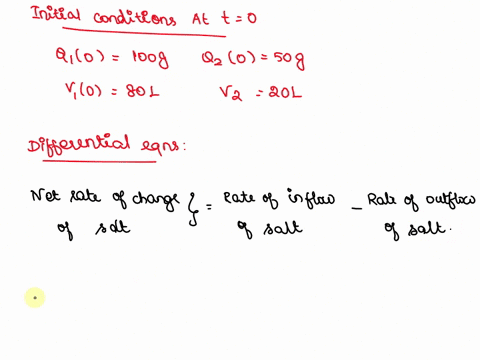 Initial conditions At t=0
Q₁(0) = 100g   Q₂(0) = 50g
V₁(0) = 80L   V₂ = 20L
Differential eqns:
Net rate of change } = rate of inflow − Rate of outflow
of salt   of salt   of salt.